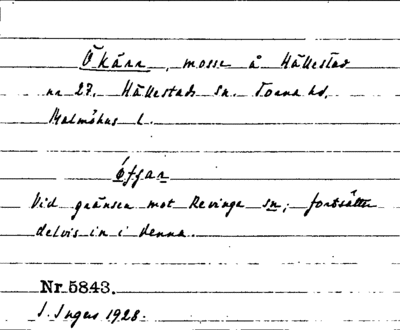 Ökärr, mosse å Hällestad
nr 27, Hällestads sn. Torna hd,
Malmöhus l.
Vid gränsen mot Revinge sn; fortsätter
delvis in i denna.
Nr. 5843.
1928.